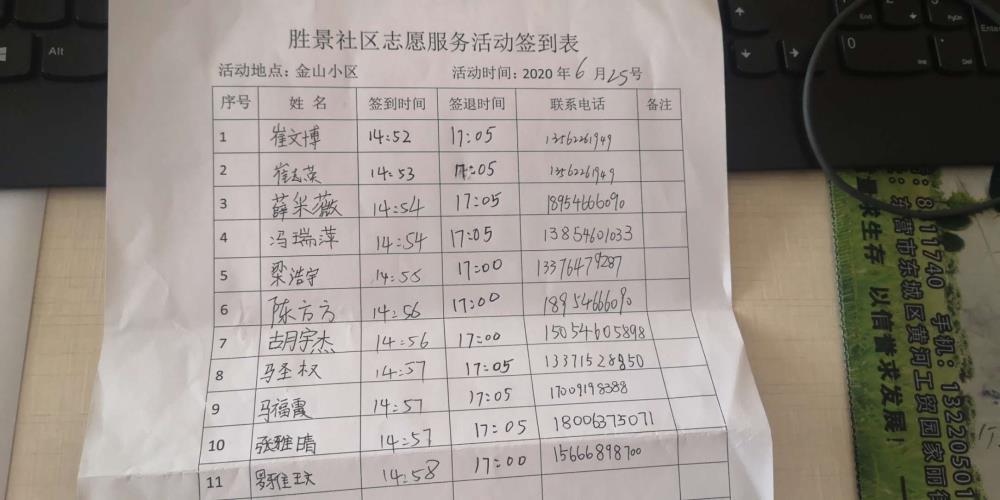 胜景社区志愿服务活动签到表
活动地点：金山小区 活动时间：2020 年 6 月 25 号
序号 姓 名 签到时间 签退时间 联系电话 备注
1 崔文博 14:52 17:05 13562261949
2 崔 荣 14:53 17:05 13562261949
3 薛采薇 14:54 17:05 18954666090
4 冯瑞萍 14:54 17:05 13854601033
5 梁浩宇 14:55 17:00 13376479287
6 陈方方 14:56 17:00 18954666090
7 胡宇杰 14:56 17:00 15054605898
8 马圣权 14:57 17:05 13371528850
9 马福霞 14:57 17:05 17009198388
10 张雅晴 14:57 17:05 18006375071
11 14:58 17:00 15666898700
Alt
Ins
0
Del
PgDn
End
811740 手机：13220501
东营市东城区黄河工贸园家丽
求生存 以信誉求发展！